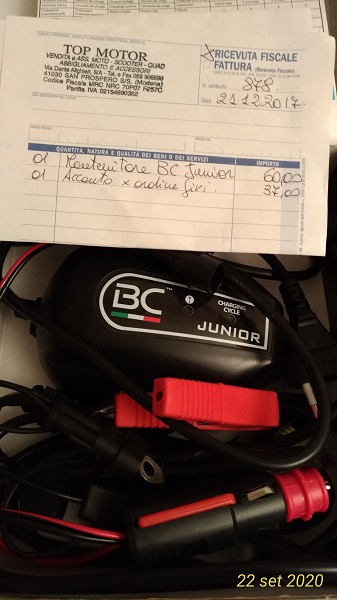 TOP MOTOR
VENDITA e ASS. MOTO - SCOOTER - QUAD
ABBIGLIAMENTO E ACCESSORI
Via Dante Alighieri, 8/A - Tel. e Fax 059 906699
41030 SAN PROSPERO S/S. (Modena)
Codice Fiscale MRC NRC 70P07 F257G
Partita IVA 02154690362
RICEVUTA FISCALE
FATTURA (Ricevuta Fiscale)
N. attribuito 878
Data 21.12.2017
QUANTITÀ, NATURA E QUALITÀ DEI BENI O DEI SERVIZI IMPORTO
01 Mantenitore BC Junior 60,00
01 Acconto x ordine 37,00
BC
CHARGING
CYCLE
JUNIOR
22 set 2020